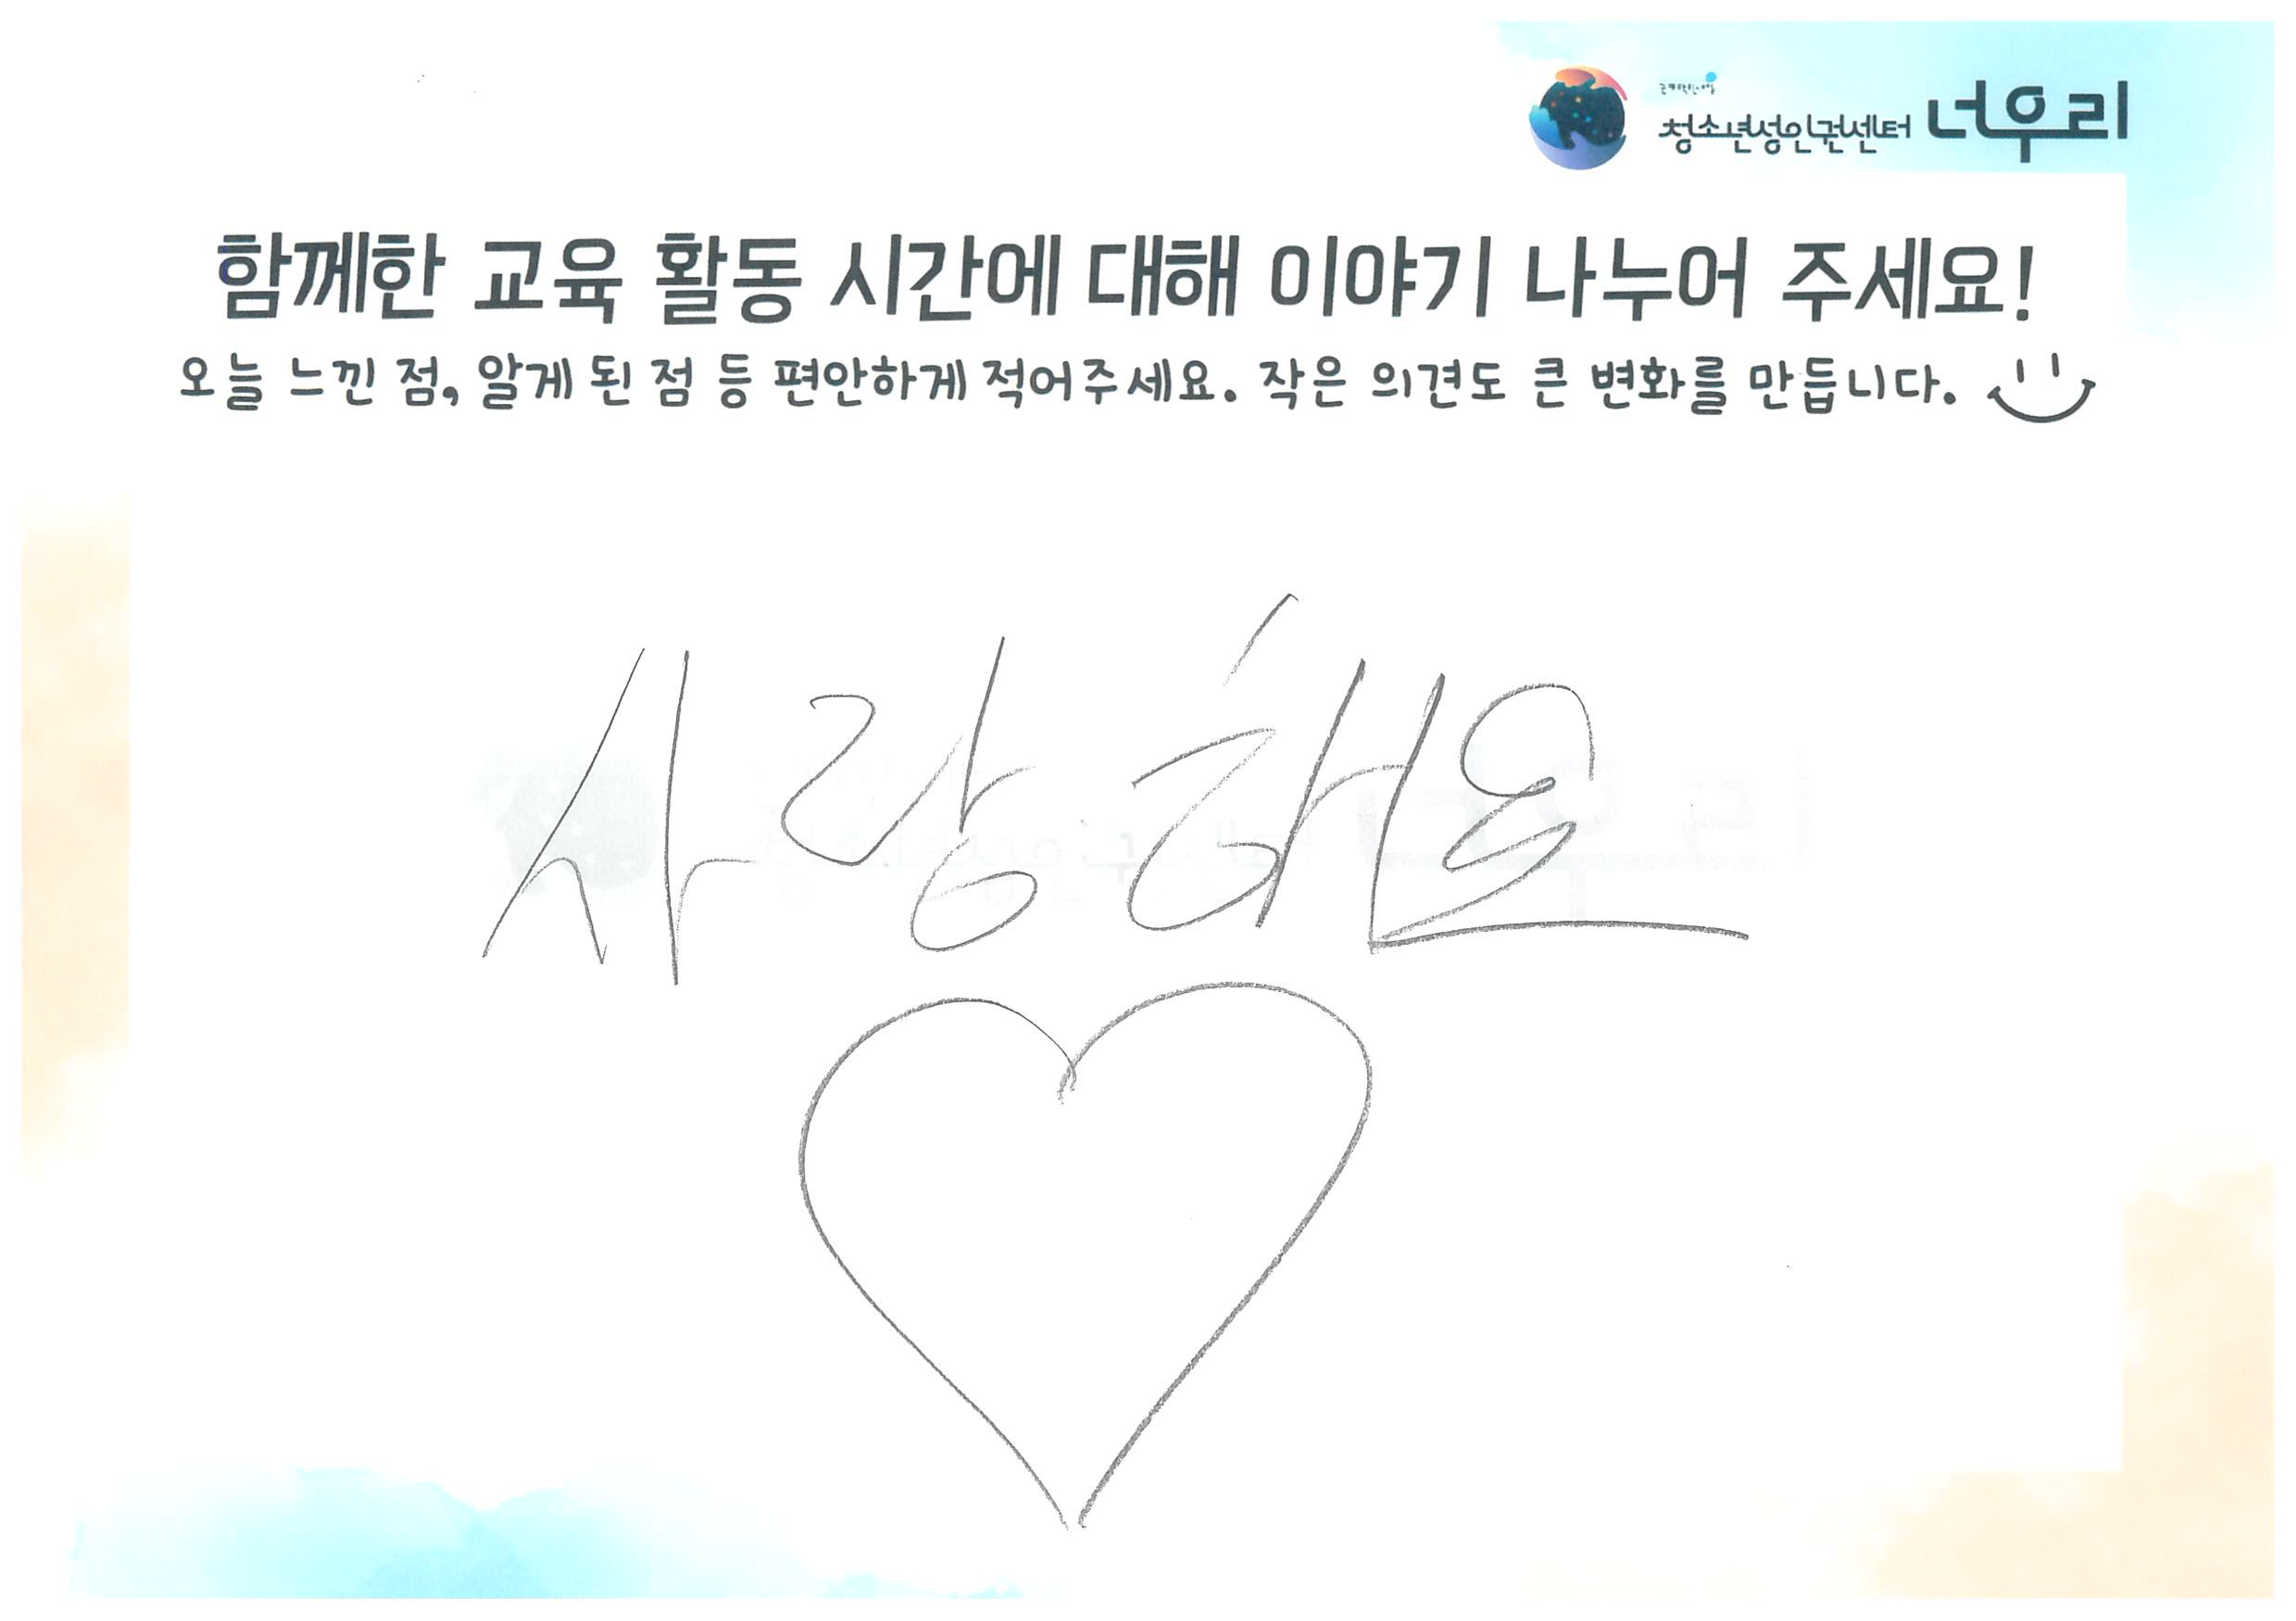 청소년성인권센터 너우리
함께한 교육 활동 시간에 대해 이야기 나누어 주세요!
오늘 느낀 점, 알게 된 점 등 편안하게 적어주세요. 작은 의견도 큰 변화를 만듭니다.
사랑해요